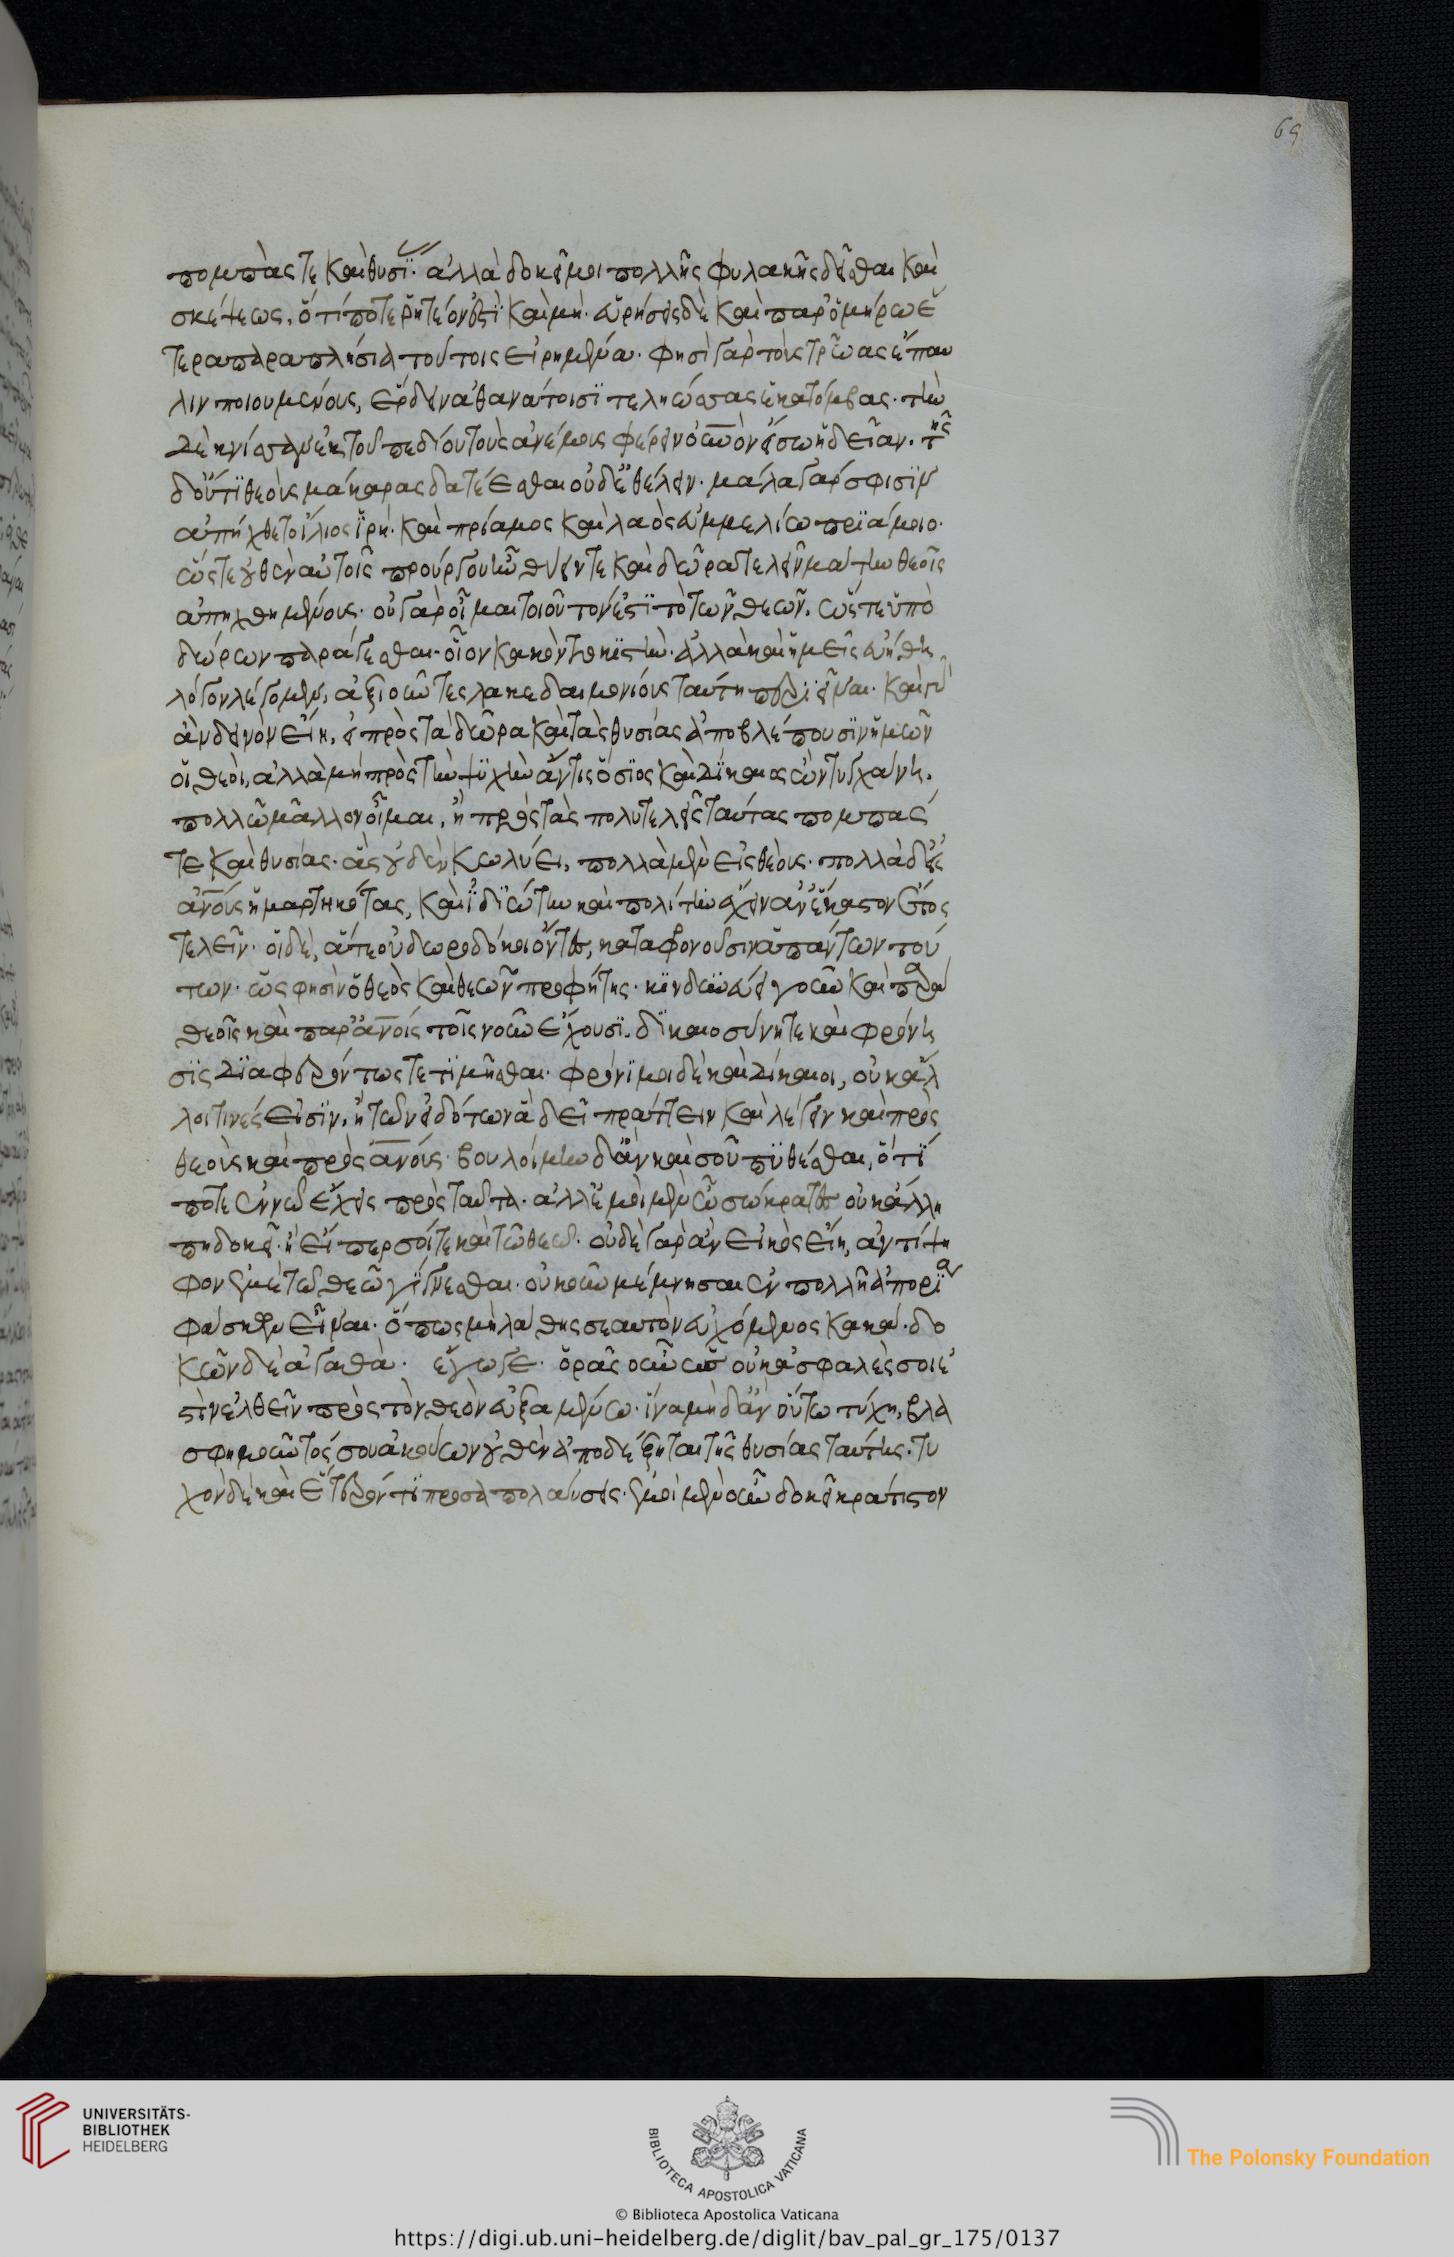 69
πομπάς τε καὶ θυσίας· ἀλλὰ δοκεῖ μοι πολλῆς φυλακῆς δεῖσθαι καὶ
σκέψεως, ὅτί ποτε ῥητέον ἐστὶ καὶ μή· εὑρήσεις δὲ καὶ παρ' ὁμήρω ἕ
τερα παραπλήσια τούτοις εἰρημένα· φησὶ γὰρ τοὺς τρῶας ἔπαυ
λιν ποιουμένους, ἔρδειν ἀθανάτοισι τεληέσσας ἑκατόμβας· τὴν
δὲ κνίσσαν ἐκ τοῦ πεδίου τοὺς ἀνέμους φέρειν οὐρανὸν εἴσω ἡδεῖαν· τῆς
δ' οὔτι θεοὺς μάκαρας δατέεσθαι οὐδ' ἐθέλειν· μάλα γάρ σφισιν
ἀπήχθετο ἴλιος ἱρή· καὶ πρίαμος καὶ λαὸς ἐυμμελίω πριάμοιο·
ὥστε οὐθὲν αὐτοῖς προύργου ἦν θύειν τε καὶ δῶρα τελεῖν μάτην θεοῖς
ἀπηχθημένους· οὐ γὰρ οἶμαι τοιοῦτόν ἐστι τὸ τῶν θεῶν, ὥστε ὑπὸ
δώρων παράγεσθαι· οἷον κακὸν τοκιστήν· ἀλλὰ καὶ ἡμεῖς εὐήθη
λόγον λέγομεν, ἀξιοῦντες λακεδαιμονίους ταύτη περιεῖναι· καὶ γὰρ
ἂν δεινὸν εἴη, εἰ πρὸς τὰ δῶρα καὶ τὰς θυσίας ἀποβλέπουσιν ἡμῶν
οἱ θεοί, ἀλλὰ μὴ πρὸς τὴν ψυχὴν ἄν τις ὅσιος καὶ δίκαιος ὢν τυγχάνη.
πολλῶ μᾶλλον οἶμαι, ἢ πρὸς τὰς πολυτελεῖς ταύτας πομπάς
τε καὶ θυσίας· ἃς οὐδὲν κωλύει, πολλὰ μὲν εἰς θεούς· πολλὰ δ' εἰς
ἀνους ἡμαρτηκότας, καὶ ἰδιώτην καὶ πολίτην ἔχειν ἀν' ἕκαστον ἔτος
τελεῖν· οἱ δέ, ἅτε οὐ δωροδόκοι ὄντες, καταφρονοῦσιν ἁπάντων τού
των· ὥς φησιν ὁ θεὸς καὶ θεῶν προφήτης· κινδυνεύει γοῦν καὶ παρὰ
θεοῖς καὶ παρ' ἀνοις τοῖς νοῦν ἔχουσι. δικαιοσύνη τε καὶ φρόνη
σις διαφερόντως τετιμῆσθαι· φρόνιμοι δὲ καὶ δίκαιοι, οὐκ ἄλ
λοι τινές εἰσιν, ἢ τῶν εἰδότων ἃ δεῖ πράττειν καὶ λέγειν καὶ πρὸς
θεοὺς καὶ πρὸς ἀνους· βουλοίμην δ' ἂν καὶ σοῦ πυθέσθαι, ὅτί
ποτε ἐν νῶ ἔχεις πρὸς ταῦτα· ἀλλ' ἐμοὶ μὲν ὦ σώκρατες οὐκ ἄλλη
πη δοκεῖ· ἢ εἴπερ σοί τε καὶ τῶ θεῶ· οὐδὲ γὰρ ἂν εἰκὸς εἴη, ἀντίψη
φον ἐμὲ τῶ θεῶ γίγνεσθαι· οὐκοῦν μέμνησαι ἐν πολλῆ ἀπορία
φάσκων εἶναι· ὅπως μὴ λάθης σεαυτὸν εὐχόμενος κακά· δο
κῶν δὲ ἀγαθά· ἔγωγε· ὁρᾶς οὖν ὡς οὐκ ἀσφαλές σοί ἐ
στιν ἐλθεῖν πρὸς τὸν θεὸν εὐξαμένω· ἵνα μὴ δ' ἂν οὕτω τύχη, βλα
σφημοῦντός σου ἀκούων οὐθὲν ἀποδέξηται τῆς θυσίας ταύτης· τυ
χὸν δὲ καὶ ἕτερόν τι προσαπολαύσεις· ἐμοὶ μὲν οὖν δοκεῖ κράτιστον
UNIVERSITÄTS-
BIBLIOTHEK
HEIDELBERG
BIBLIOTECA APOSTOLICA VATICANA
© Biblioteca Apostolica Vaticana
The Polonsky Foundation
https://digi.ub.uni-heidelberg.de/diglit/bav_pal_gr_175/0137